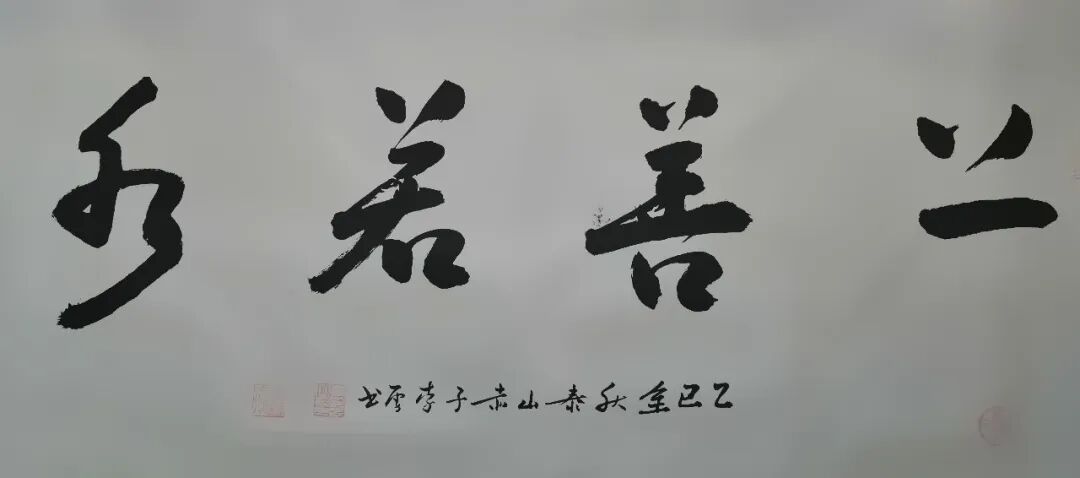 上善若水
乙巳金秋泰山赤子李云书